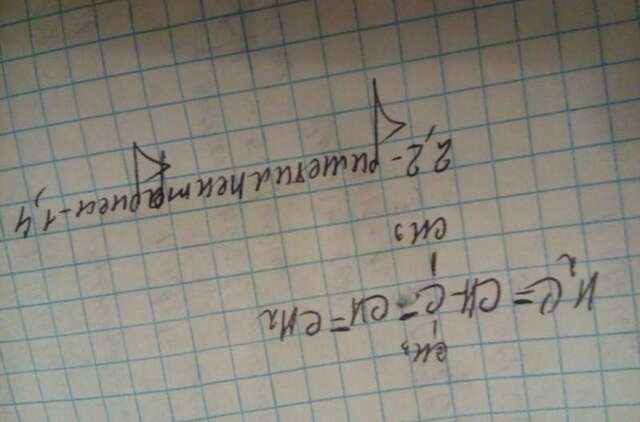 CH₃
H₂C=CH-C=CH=CH₂
CH₃
2,2-диметилпентадиен-1,4